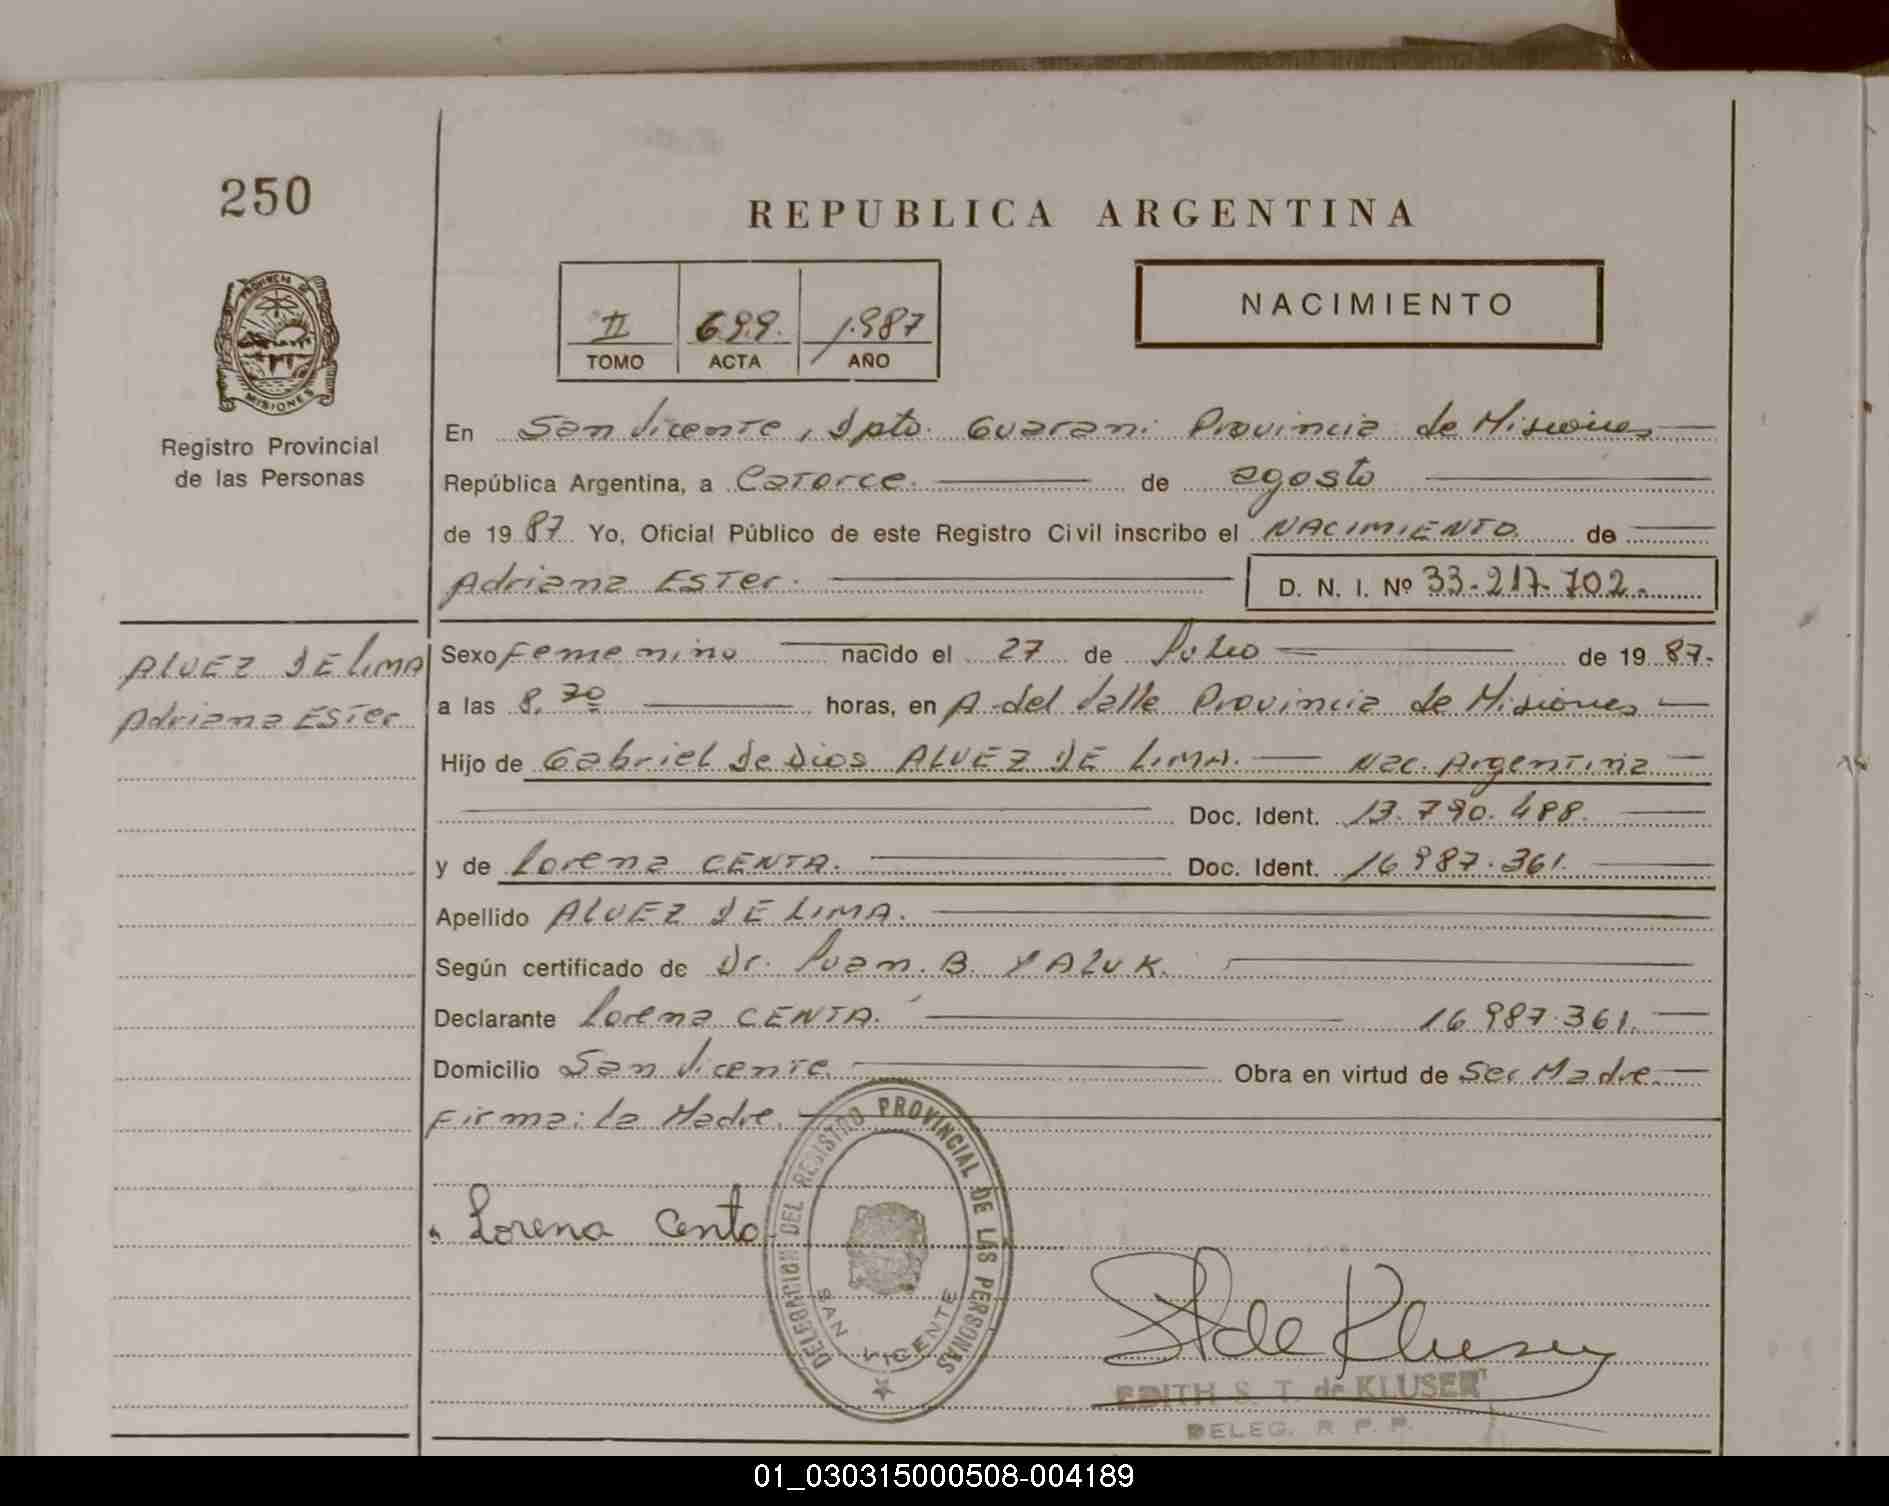 250
REPUBLICA ARGENTINA
PROVINCIA DE
MISIONES
Registro Provincial
de las Personas
II 699. 1.987
TOMO ACTA AÑO
NACIMIENTO
En San Vicente, Dpto. Guarani Provincia de Misiones
República Argentina, a Catorce. de agosto
de 19 87 Yo, Oficial Público de este Registro Civil inscribo el NACIMIENTO. de
Adriana Ester. D. N. I. Nº 33-217-702.
ALVEZ DE LIMA
Adriana Ester
Sexo Femenino nacido el 27 de Julio de 19 87.
a las 8. horas, en A. del Valle Provincia de Misiones
Hijo de Gabriel De Dios ALVEZ DE LIMA. Nac. Argentina
Doc. Ident. 13.790.488.
y de Lorena CENTA. Doc. Ident. 16 987.361.
Apellido ALVEZ DE LIMA.
Según certificado de Dr. Juan. B. YALUK.
Declarante Lorena CENTA. 16 987.361.
Domicilio San Vicente. Obra en virtud de Ser Madre.
Firma: La Madre.
Lorena Centa
DELEGACION DEL REGISTRO PROVINCIAL DE LAS PERSONAS
SAN VICENTE
de Kluser
EDITH S. T. de KLUSER
DELEG. R. P. P.
01_030315000508-004189